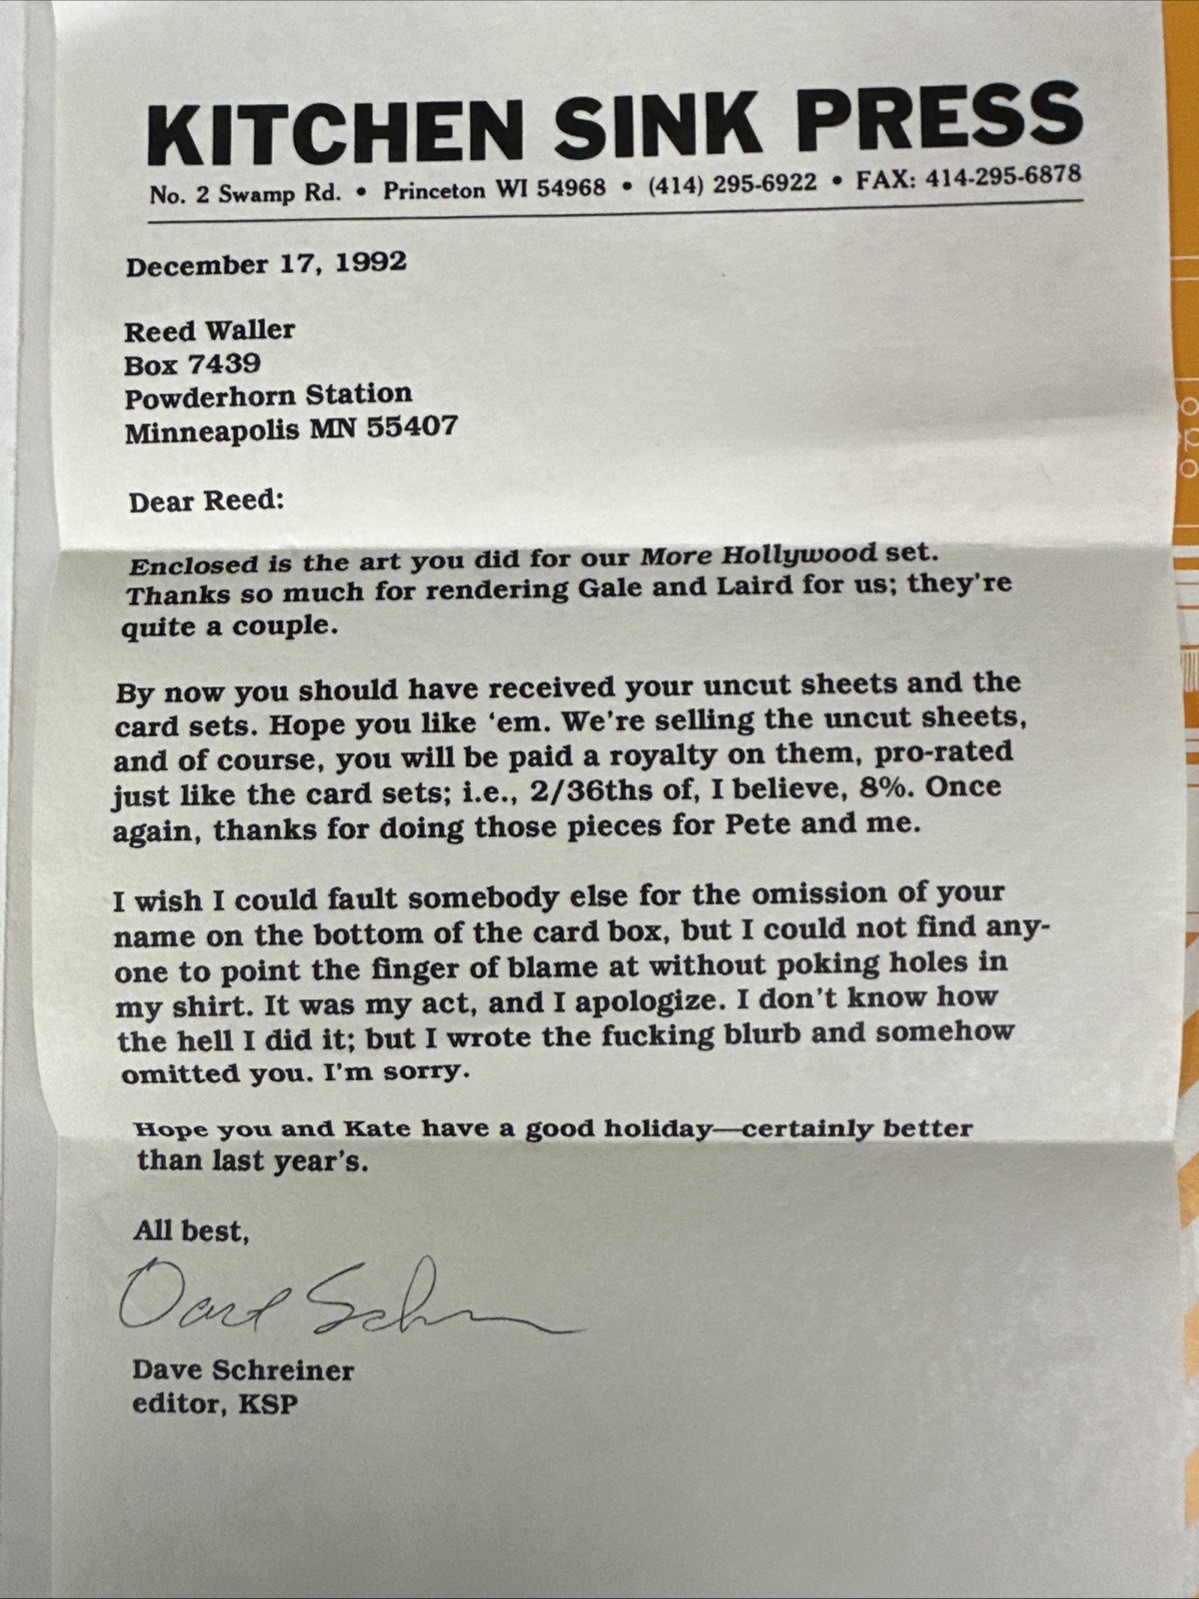 KITCHEN SINK PRESS
No. 2 Swamp Rd. • Princeton WI 54968 • (414) 295-6922 • FAX: 414-295-6878
December 17, 1992
Reed Waller
Box 7439
Powderhorn Station
Minneapolis MN 55407
Dear Reed:
Enclosed is the art you did for our More Hollywood set.
Thanks so much for rendering Gale and Laird for us; they're
quite a couple.
By now you should have received your uncut sheets and the
card sets. Hope you like ‘em. We're selling the uncut sheets,
and of course, you will be paid a royalty on them, pro-rated
just like the card sets; i.e., 2/36ths of, I believe, 8%. Once
again, thanks for doing those pieces for Pete and me.
I wish I could fault somebody else for the omission of your
name on the bottom of the card box, but I could not find any-
one to point the finger of blame at without poking holes in
my shirt. It was my act, and I apologize. I don't know how
the hell I did it; but I wrote the fucking blurb and somehow
omitted you. I'm sorry.
Hope you and Kate have a good holiday—certainly better
than last year's.
All best,
Dave Schreiner
editor, KSP